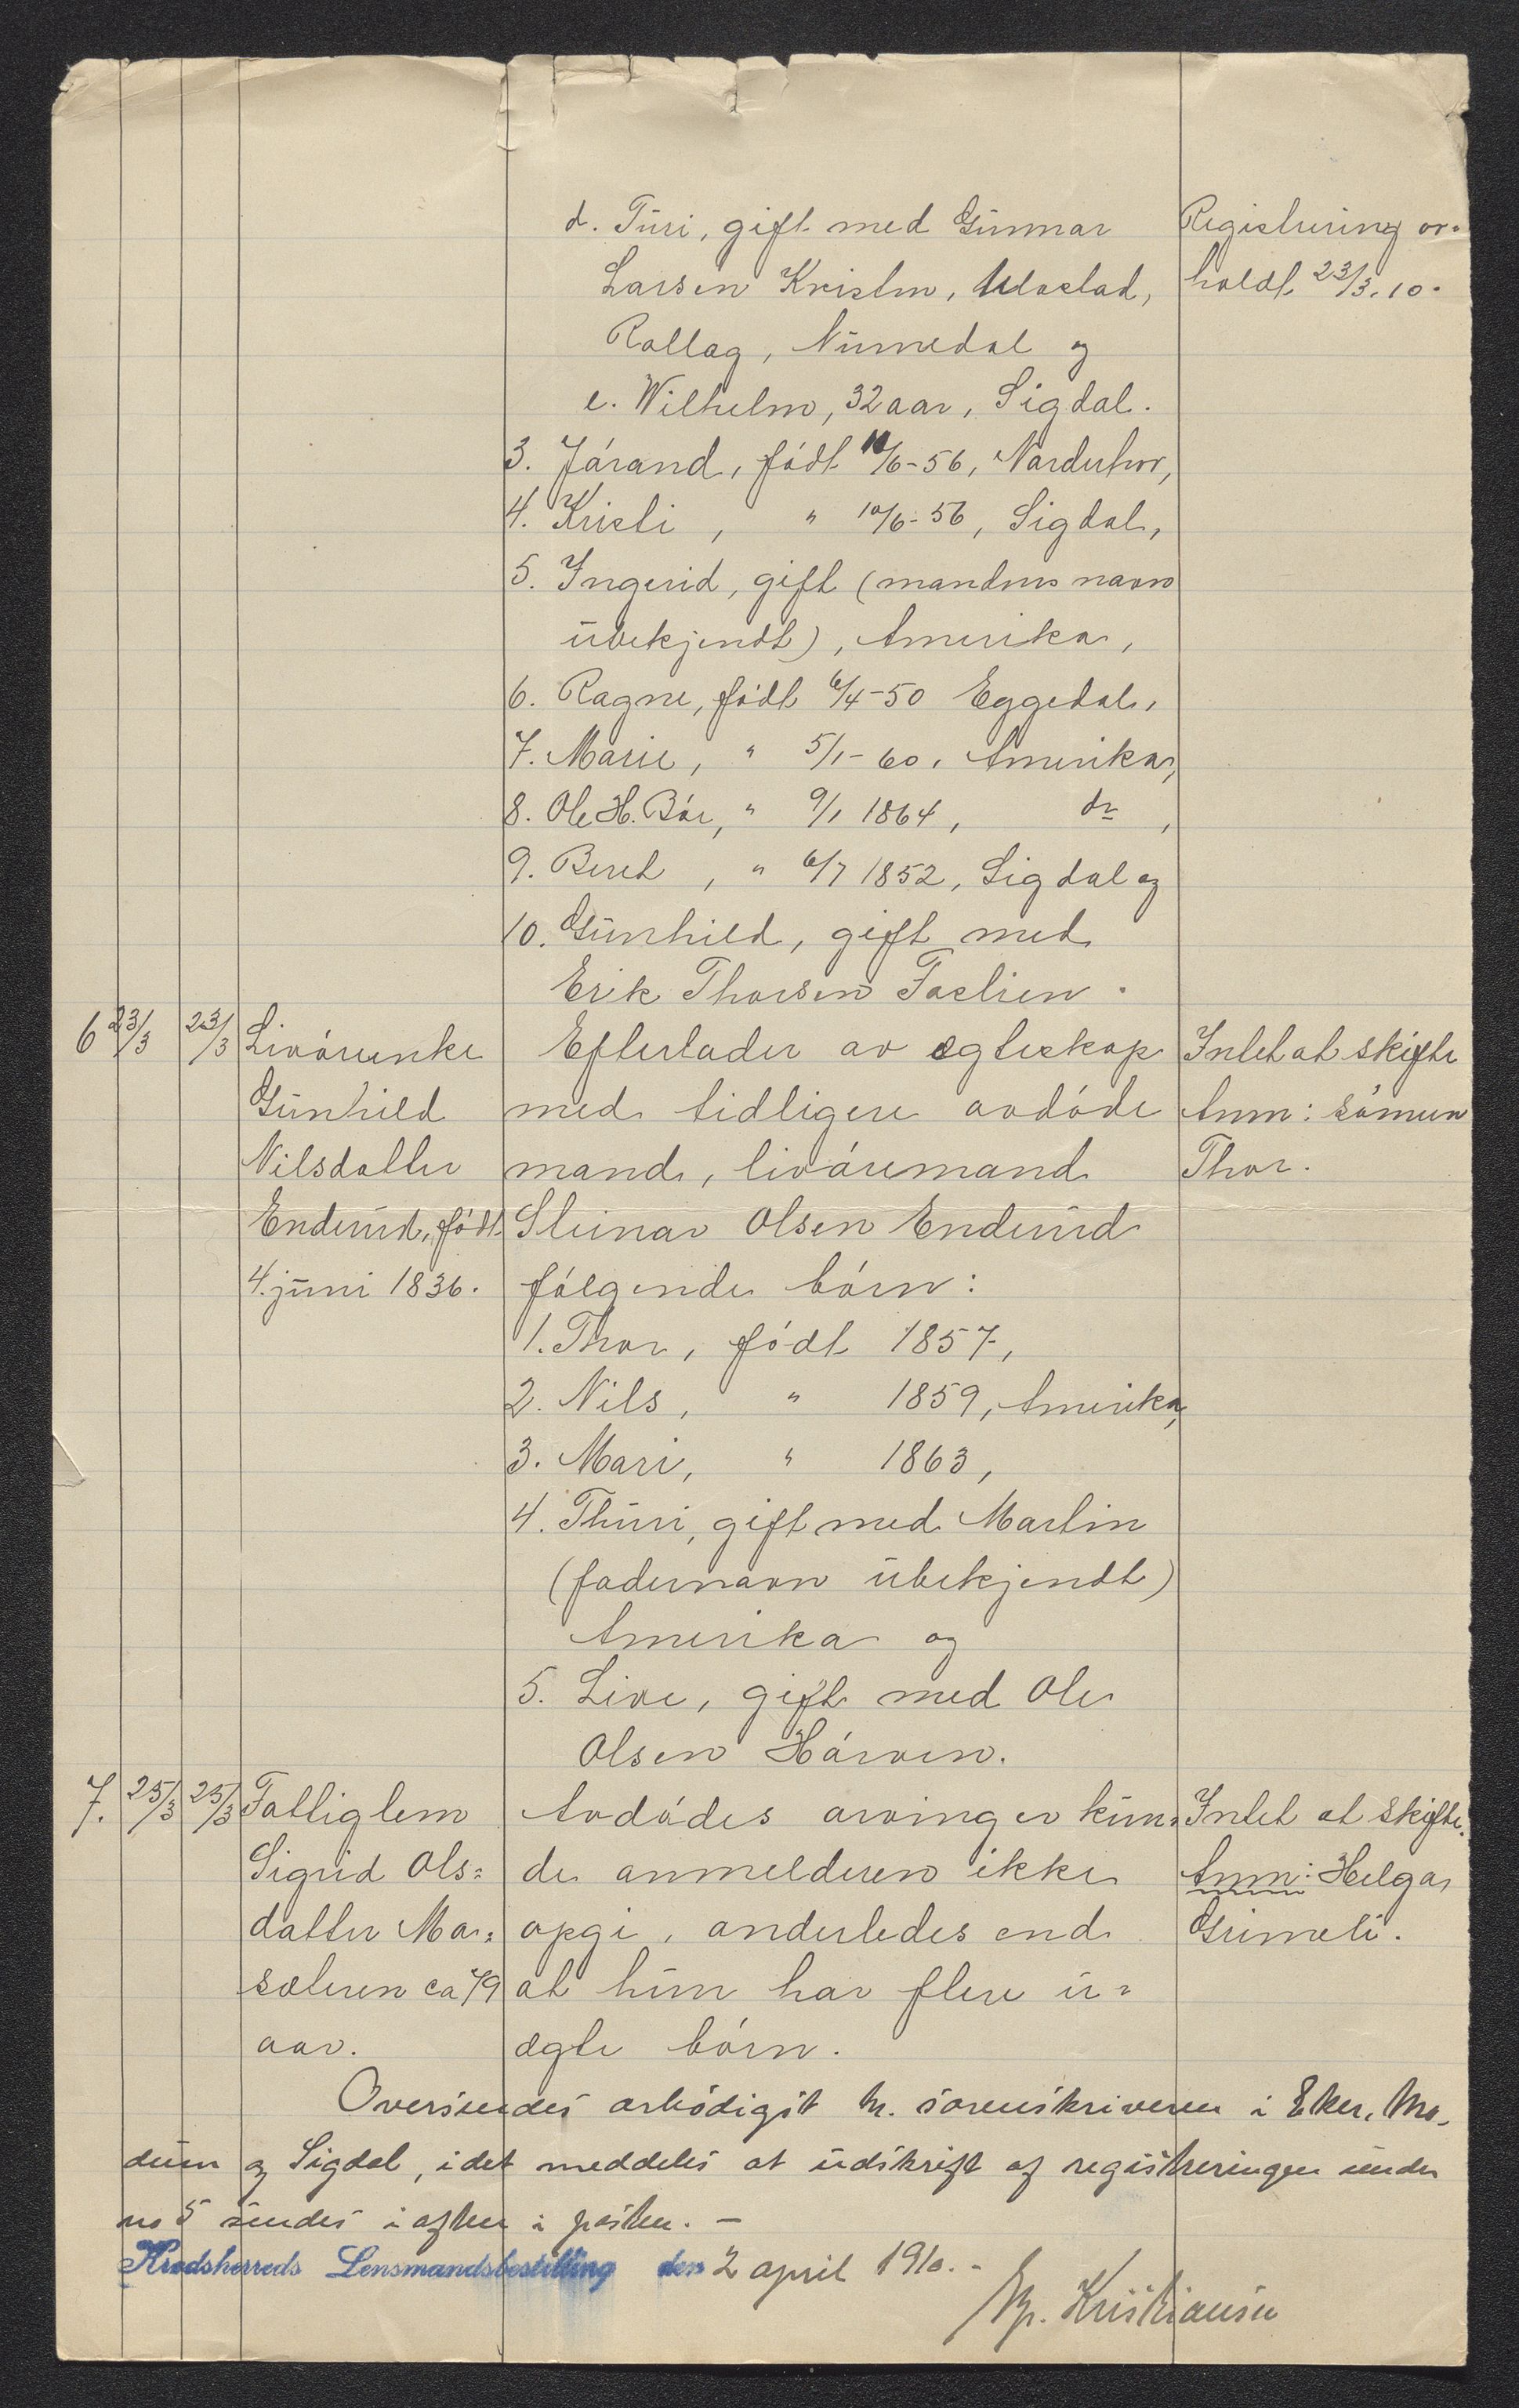 d. Turi, gift med Gunnar
Larsen Kristen,
Rollag, Numedal og
e. Wilhelm, 32 aar, Sigdal.
Registrering av-
holdt 23/3.10.
3. Jörand, födt 10/6-56, Norderhov,
4. Kristi, " 10/6-56, Sigdal,
5. Ingerid, gift (mandens navn
ubekjendt), Amerika,
6. Ragne, födt 6/4-50 Eggedal,
7. Marie, " 5/1-60, Amerika,
8. Ole H. Bör, " 9/1 1864, do,
9. Beret, " 6/7 1852, Sigdal og
10. Gunhild, gift med
Erik Thorsen Foslien.
6 23/3 23/3 Livörenke
Gunhild
Nilsdatter
Enderud, födt
4. juni 1836.
Efterlader av egteskap
med tidligere avdöde
mand, livöremand
Steinar Olsen Enderud
fölgende börn:
1. Thor, födt 1857,
2. Nils, " 1859, Amerika,
3. Mari, " 1863,
4. Thuri, gift med Martin
(fadernavn ubekjendt)
Amerika og
5. Live, gift med Ole
Olsen Hörven.
Intet at skifte
Anm: sönnen
Thor.
7. 25/3 25/3 Fattiglem
Sigrid Ols=
datter Mo=
sæteren ca 79
aar.
Avdödes arvinger kun=
de anmelderen ikke
opgi, anderledes end
at hun har flere u=
ægte börn.
Intet at skifte.
Anm: Helga
Grimeli.
Oversendes ærbödigst hr. sorenskriveren i Eker, Mo-
dum og Sigdal, idet meddeles at udskrift af registreringen under
no 5 sendes i aften i posten. –
Krødsherreds Lensmandsbestilling den 2 april 1910. –
Kristiansen